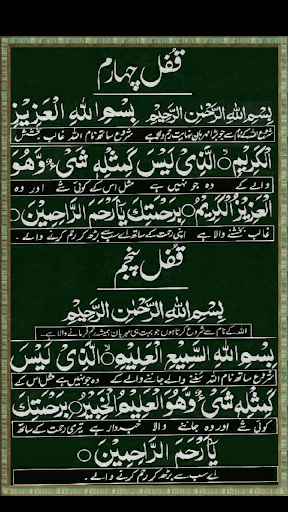 قفل چہارم
بِسْمِ اللهِ الرَّحْمٰنِ الرَّحِيْمِ بِسْمِ اللهِ الْعَزِيْزِ
شروع اللہ کے نام سے جو بڑا مہربان نہایت رحم والا ہے شروع ساتھ نام اللہ غالب بخشش
الْكَرِيْمِ الَّذِيْ لَيْسَ كَمِثْلِهٖ شَيْءٌ وَّهُوَ
والے کے وہ جو نہیں ہے مثل اس کے کوئی شے اور وہ
الْعَزِيْزُ الْكَرِيْمُ بِرَحْمَتِكَ يَآ اَرْحَمَ الرَّاحِمِيْنَ
غالب بخشنے والا ہے اپنی رحمت کے ساتھ اے سب سے بڑھ کر رحم کرنے والے۔
قفل پنجم
بِسْمِ اللهِ الرَّحْمٰنِ الرَّحِيْمِ
اللہ کے نام سے شروع کرتا ہوں جو بہت ہی مہربان ہمیشہ رحم فرمانے والا ہے۔
بِسْمِ اللهِ السَّمِيْعِ الْعَلِيْمِ الَّذِيْ لَيْسَ
شروع ساتھ نام اللہ سننے والے جاننے والے کے وہ جو نہیں ہے مثل اس کے
كَمِثْلِهٖ شَيْءٌ وَّهُوَ الْعَلِيْمُ الْخَبِيْرُ بِرَحْمَتِكَ
کوئی شے اور وہ جاننے والا خبردار ہے تیری رحمت کے ساتھ
يَآ اَرْحَمَ الرَّاحِمِيْنَ
اے سب سے بڑھ کر رحم کرنے والے۔